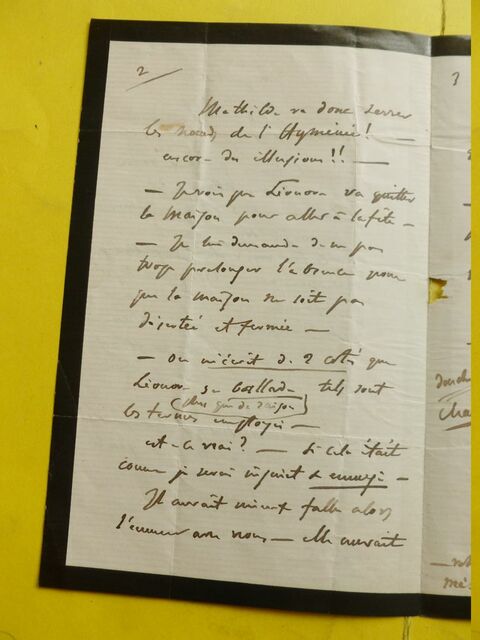 2
Mathilde va donc serrer
les nœuds de l'Hymenée!
encore des illusions!! —
— Je vois que Léonora va quitter
la maison pour aller à la fête —
— Je lui demande de ne pas
trop prolonger l'absence pour
que la maison ne soit pas
désertée et fermée —
— on m'écrit de 2 côtés que
Léonora se tels sont
(plus que de raison)
les termes employés —
est-ce vrai? — si cela était
comme je serai inquiet & ennuyé —
Il aurait mieux fallu alors
l'emmener avec nous — elle aurait
3